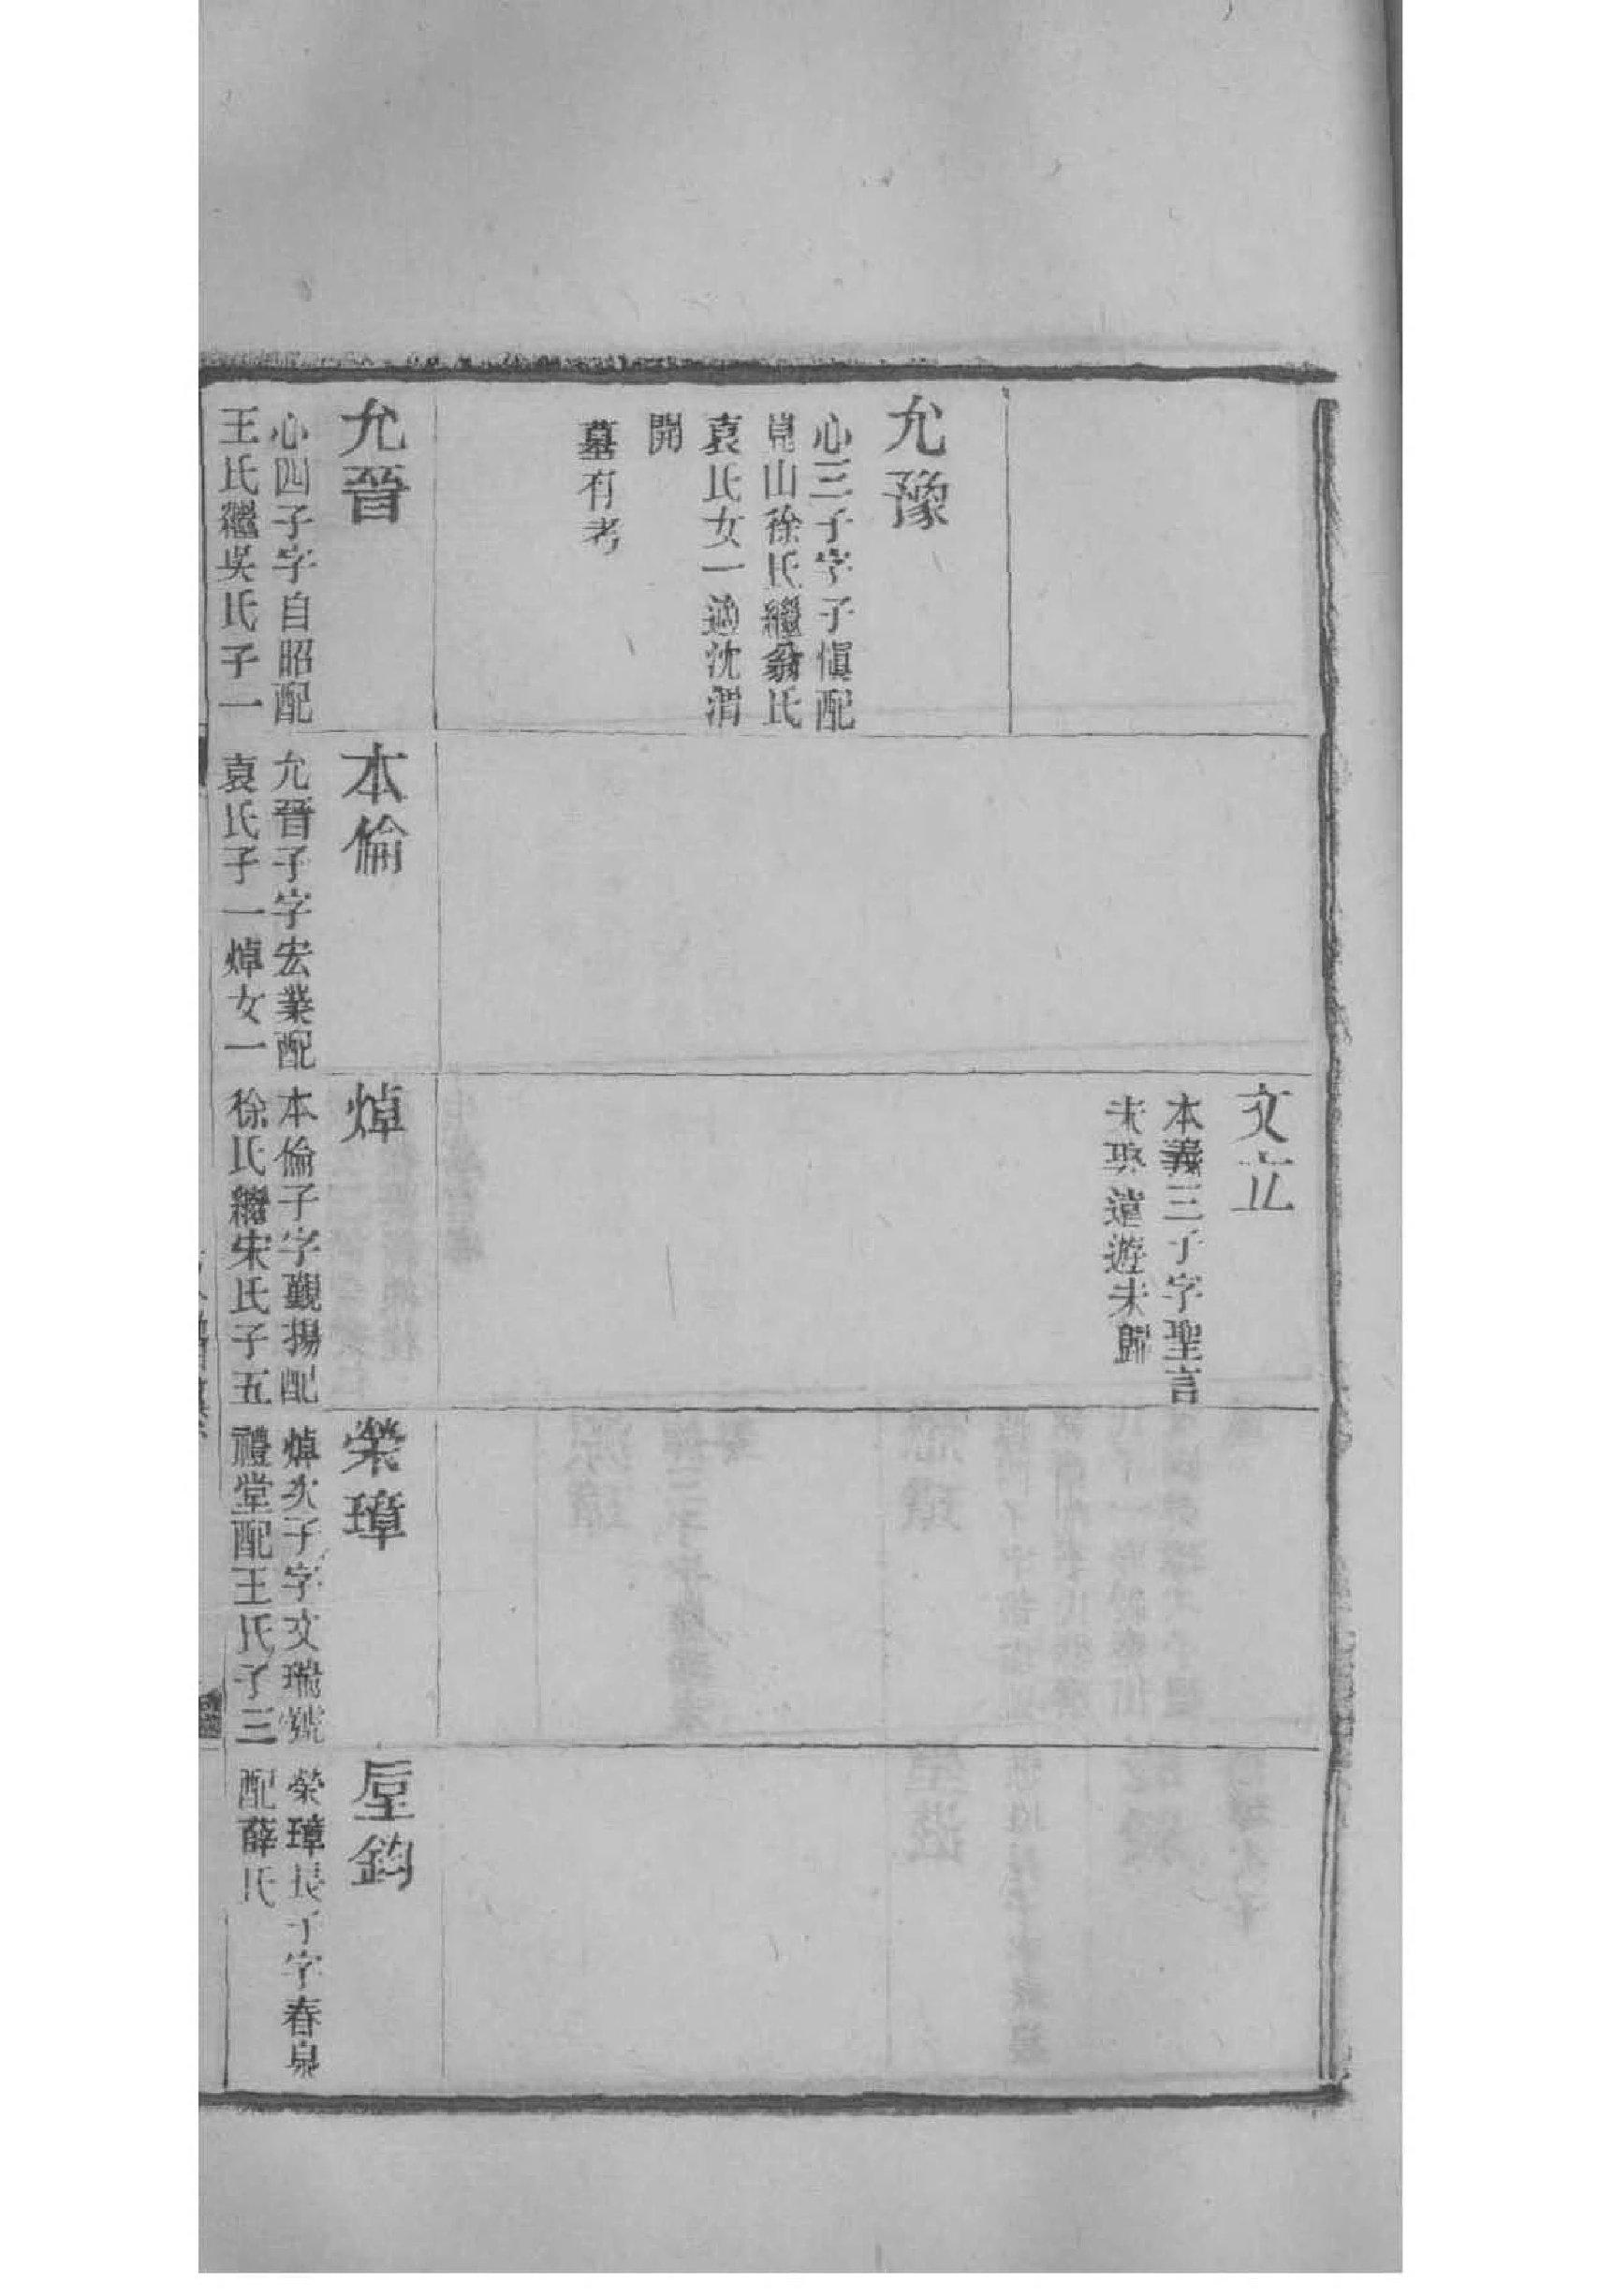 允豫
心三子字子慎配
崑山徐氏繼翁氏
袁氏女一適沈渭
開
墓有考
允晉
心四子字自昭配
王氏繼吳氏子一
本倫
允晉子字宏業配
袁氏子一焯女一
文立
本義三子字聖言
未娶遠遊未歸
焯
本倫子字覲揚配
徐氏繼宋氏子五
榮璋
焯次子字文瑞號
禮堂配王氏子三
垕鈞
榮璋長子字春泉
配薛氏